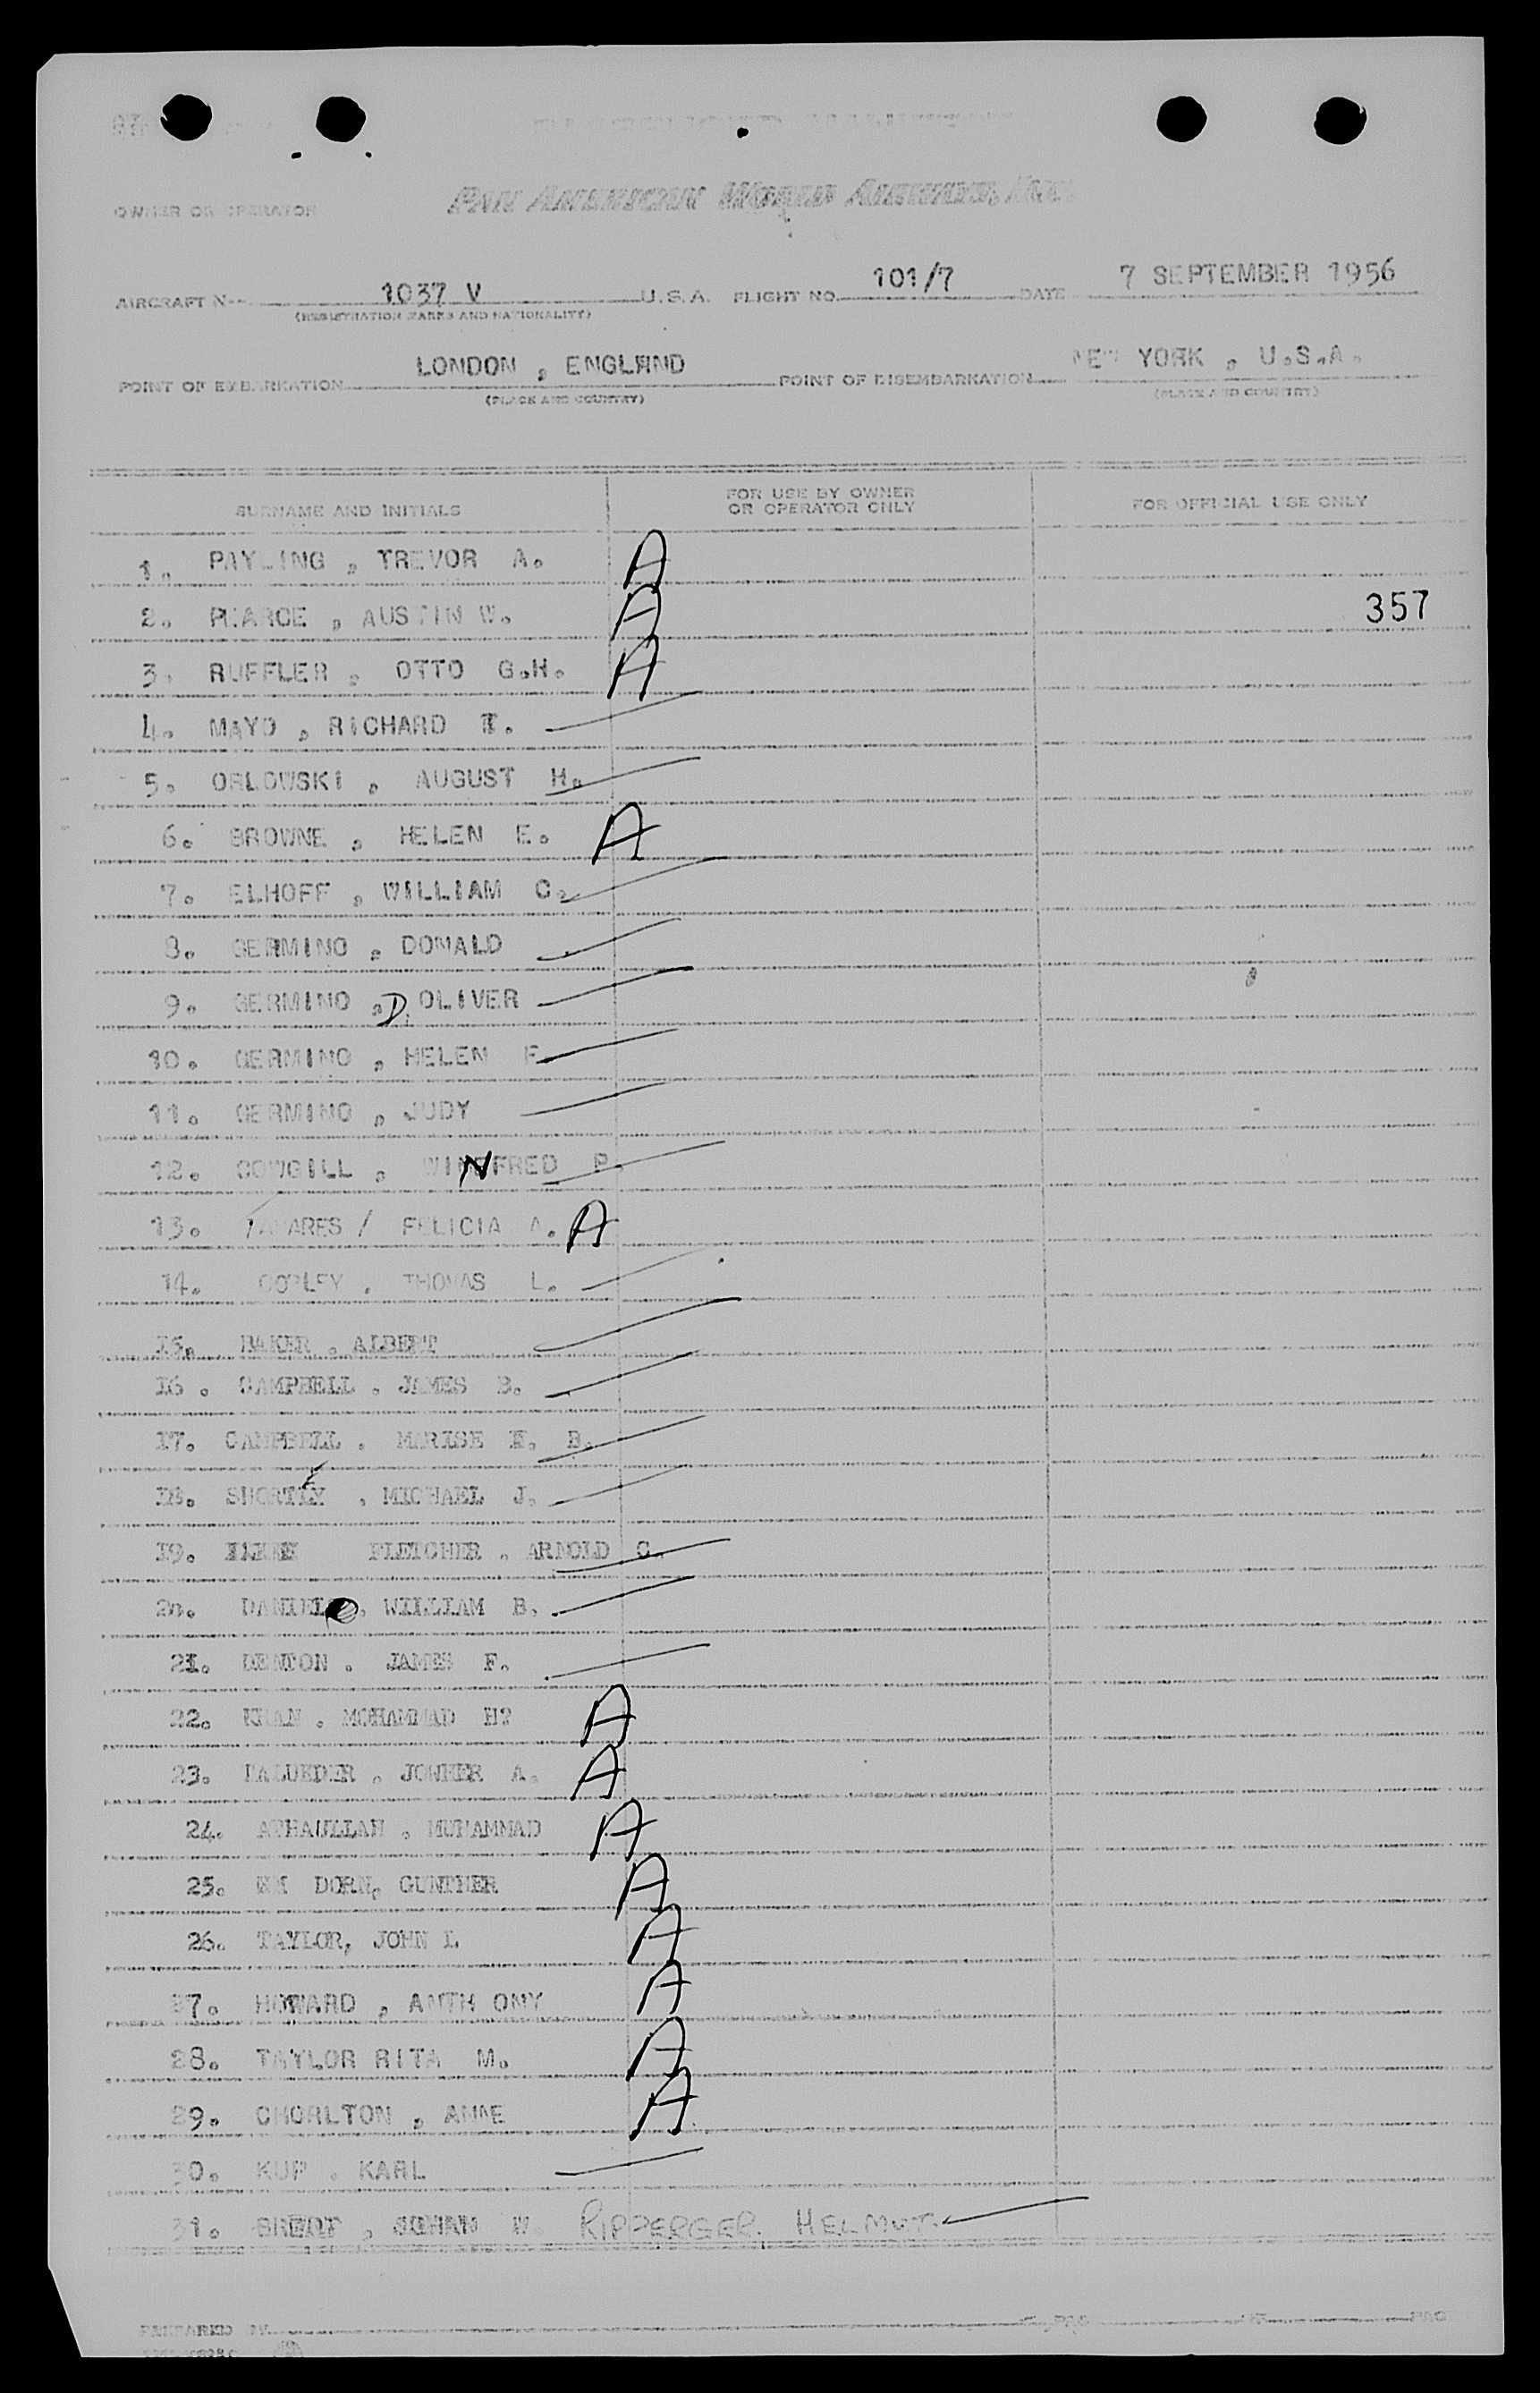 OWNER OR OPERATOR
PAN AMERICAN WORLD AIRWAYS, INC.
AIRCRAFT N-- 1037 V U.S.A. FLIGHT NO. 101/7 DATE 7 SEPTEMBER 1956
(REGISTRATION MARKS AND NATIONALITY)
LONDON , ENGLAND NEW YORK , U.S.A.
POINT OF EMBARKATION POINT OF DISEMBARKATION
(PLACE AND COUNTRY) (PLACE AND COUNTRY)
SURNAME AND INITIALS FOR USE BY OWNER OR OPERATOR ONLY FOR OFFICIAL USE ONLY
1. PAYLING , TREVOR A. A
2. PEARCE , AUSTIN W. A 357
3. RUFFLER , OTTO G.H. A
4. MAYO , RICHARD T.
5. ORLOWSKI , AUGUST H.
6. BROWNE , HELEN E. A
7. ELHOFF , WILLIAM C.
8. GERMINO , DONALD
9. GERMINO , D. OLIVER
10. GERMINO , HELEN F.
11. GERMINO , JUDY
12. COWGILL , WINIFRED P.
13. TAVARES / FELICIA A. A
14. THOMAS L.
15. BAKER , ALBERT
16 . CAMPBELL . JAMES B.
17. CAMPBELL . MARISE E. B.
18. , MICHAEL J.
19. FLETCHER . ARNOLD C.
20. DANIEL , WILLIAM B.
21. DENTON . JAMES F.
22. KHAN . MOHAMMAD H? A
23. A. A
24. ATHAULLAH . MUHAMMAD A
25. DORN, GUNTHER A
26. TAYLOR, JOHN L A
27. HOWARD , ANTH ONY A
28. TAYLOR RITA M. A
29. CHORLTON , ANNE A
30. KUP . KARL
31. W. RIPPERGER. HELMUT.
PREPARED BY